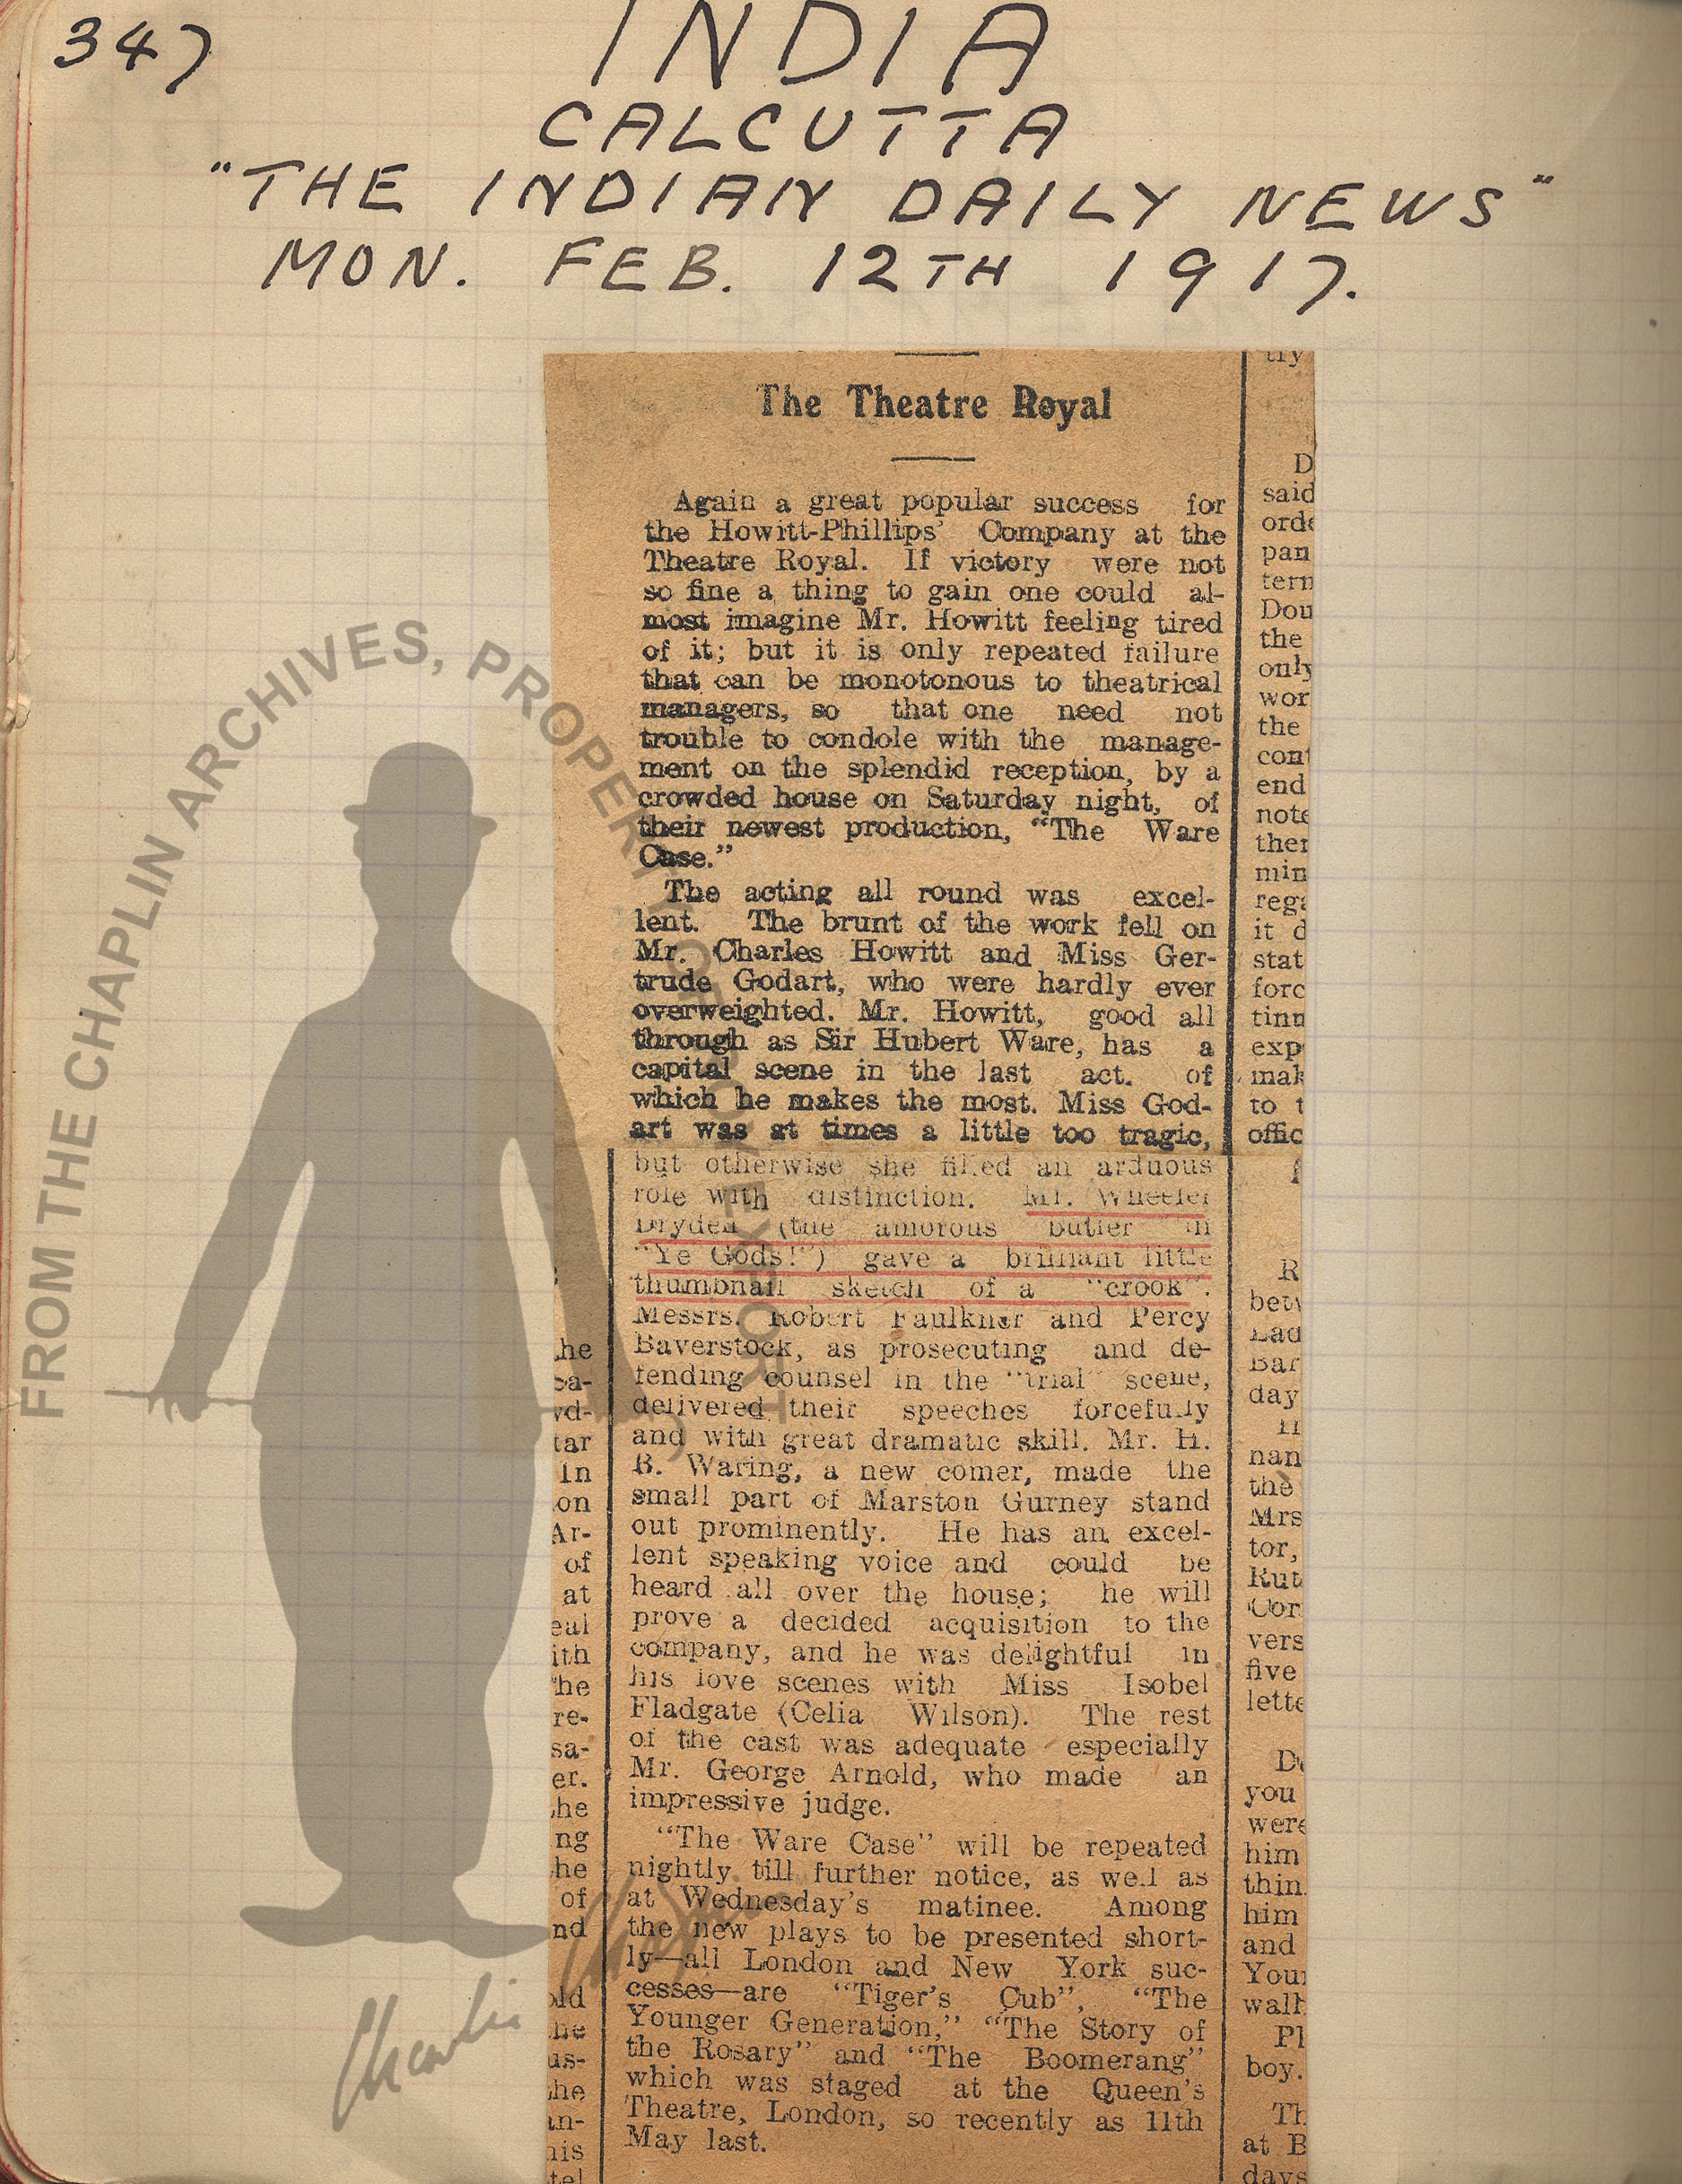 347
INDIA
CALCUTTA
"THE INDIAN DAILY NEWS"
MON. FEB. 12TH 1917.
The Theatre Royal
Again a great popular success for
the Howitt-Phillips' Company at the
Theatre Royal. If victory were not
so fine a thing to gain one could al-
most imagine Mr. Howitt feeling tired
of it; but it is only repeated failure
that can be monotonous to theatrical
managers, so that one need not
trouble to condole with the manage-
ment on the splendid reception, by a
crowded house on Saturday night, of
their newest production, "The Ware
Case."
The acting all round was excel-
lent. The brunt of the work fell on
Mr. Charles Howitt and Miss Ger-
trude Godart, who were hardly ever
overweighted. Mr. Howitt, good all
through as Sir Hubert Ware, has a
capital scene in the last act. of
which he makes the most. Miss God-
art was at times a little too tragic,
but otherwise she filled an arduous
role with distinction. Mr. Wheeler
Dryden (the amorous butler in
"Ye Gods!") gave a brilliant little
thumbnail sketch of a "crook".
Messrs. Robert Faulkner and Percy
Baverstock, as prosecuting and de-
fending counsel in the "trial" scene,
delivered their speeches forcefully
and with great dramatic skill. Mr. H.
B. Waring, a new comer, made the
small part of Marston Gurney stand
out prominently. He has an excel-
lent speaking voice and could be
heard all over the house; he will
prove a decided acquisition to the
company, and he was delightful in
his love scenes with Miss Isobel
Fladgate (Celia Wilson). The rest
of the cast was adequate especially
Mr. George Arnold, who made an
impressive judge.
"The Ware Case" will be repeated
nightly till further notice, as well as
at Wednesday's matinee. Among
the new plays to be presented short-
ly—all London and New York suc-
cesses—are "Tiger's Cub", "The
Younger Generation," "The Story of
the Rosary" and "The Boomerang"
which was staged at the Queen's
Theatre, London, so recently as 11th
May last.
FROM THE CHAPLIN ARCHIVES, PROPERTY OF ROY EXPORT
Charlie Chaplin